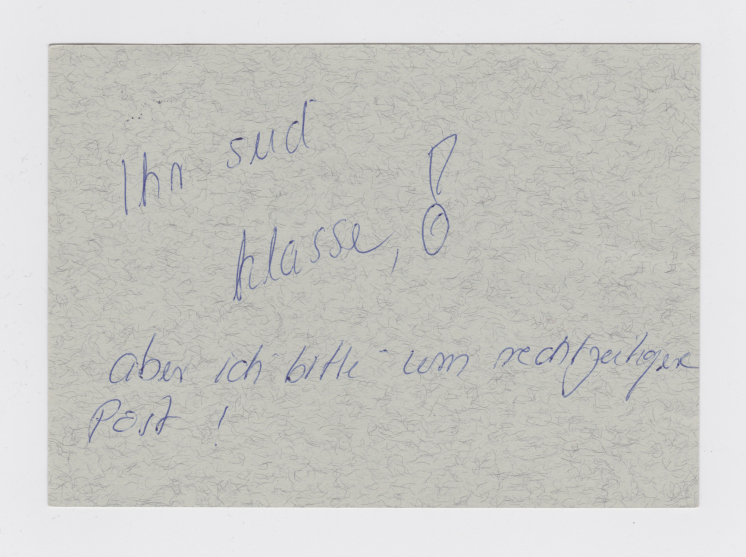 Ihr sud
klasse, !
aber ich bitte um rechtzeitigen
Post !